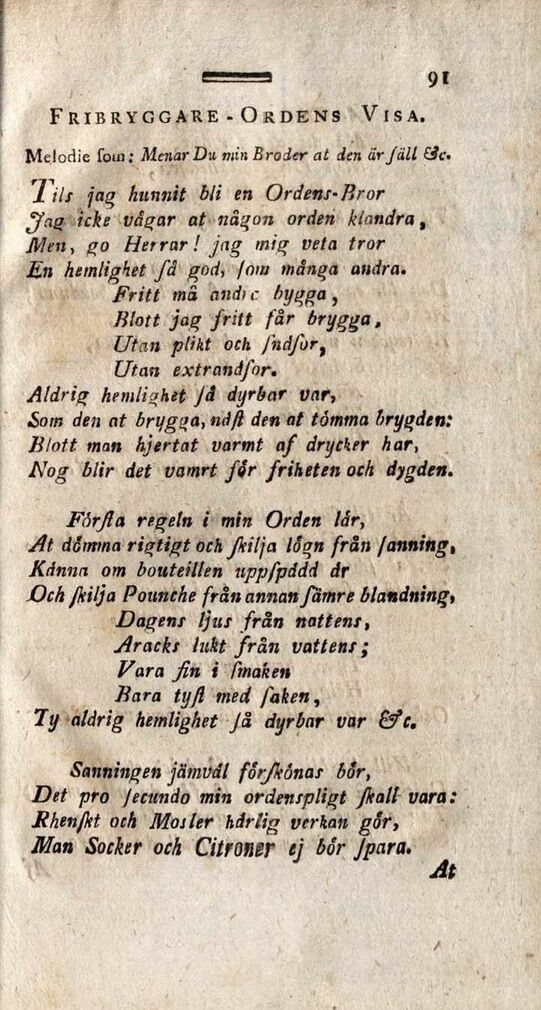 91
FRIBRYGGARE-ORDENS VISA.
Melodie ſom: Menar Du min Broder at den är ſäll &c.
Tils jag hunnit bli en Ordens-Bror
Jag icke vågar at någon orden klandra,
Men, go Herrar! jag mig veta tror
En hemlighet ſå god, ſom många andra.
Fritt må andre bygga,
Blott jag fritt får brygga,
Utan plikt och ſndſor,
Utan extrandſor.
Aldrig hemlighet ſå dyrbar var,
Som den at brygga, näſt den at tömma brygden:
Blott man hjertat varmt af drycker har,
Nog blir det vamrt för friheten och dygden.
Förſta regeln i min Orden lär,
At dömma rigtigt och ſkilja lögn från ſanning,
Känna om bouteillen uppſpädd är
Och ſkilja Pounche från annan ſämre blandning,
Dagens ljus från nattens,
Aracks lukt från vattens;
Vara fin i ſmaken
Bara tyſt med ſaken,
Ty aldrig hemlighet ſå dyrbar var &c.
Sanningen jämväl förſkönas bör,
Det pro ſecundo min ordenspligt ſkall vara:
Rhenſkt och Mosler härlig verkan gör,
Man Socker och Citroner ej bör ſpara.
At